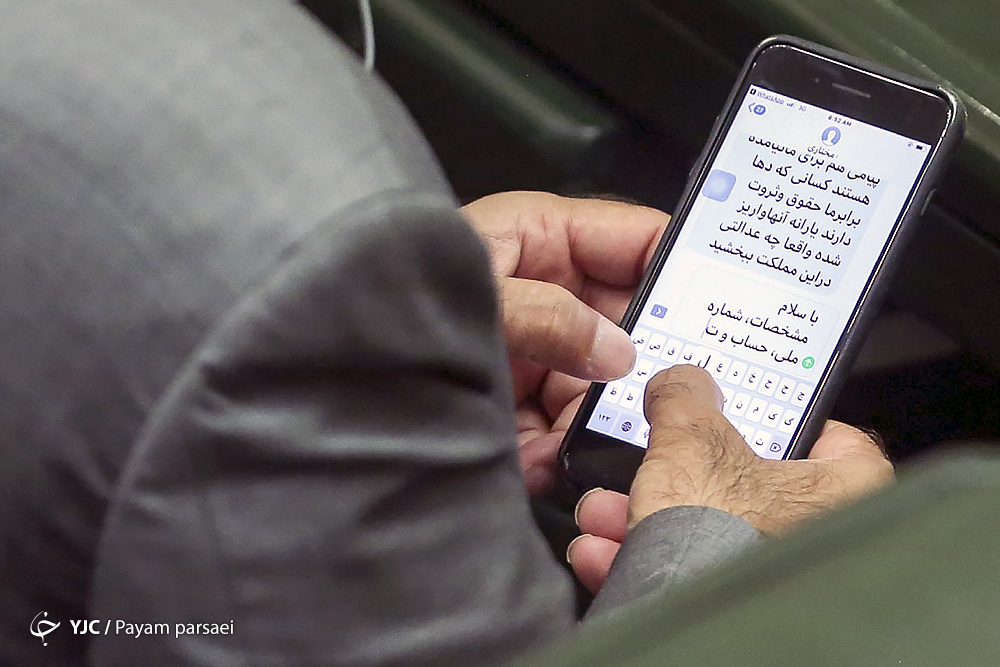 WhatsApp 3G
8:52 AM
21
مختاری
پیامی هم برای ما نیامده
هستند کسانی که دها
برابرما حقوق وثروت
دارند یارانه آنهاواریز
شده واقعا چه عدالتی
دراین مملکت ببخشید
با سلام
مشخصات، شماره
ملی، حساب و ت
ص ق ف ل ع ه خ ح ج
س ن م ک گ
ظ ط
۱۲۳
YJC / Payam parsaei